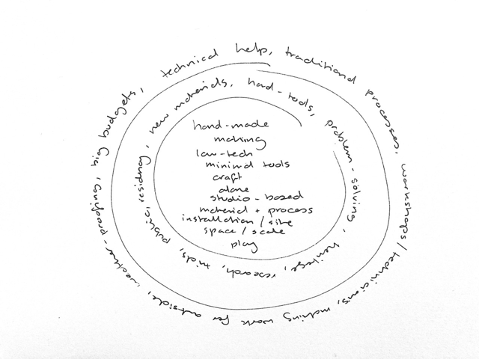 hand-made
making
low-tech
minimal tools
craft
alone
studio-based
material + process
installation / site
space / scale
play
public, residency, new materials, hand-tools, problem-solving, heritage, research, trials,
weather-proofing, big budgets, technical help, traditional processes, workshops/technicians, making work for outside,